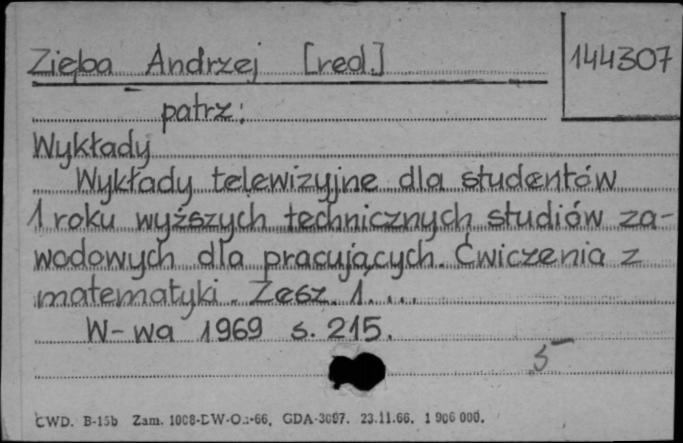 Zięba Andrzej [red.] 144307
patrz:
Wykłady
Wykłady telewizyjne dla studentów
1 roku wyższych technicznych studiów za-
wodowych dla pracujących. Ćwiczenia z
matematyki. Zesz. 1. ...
W-wa 1969 s. 215.
5
CWD. B-15b Zam. 23.11.66. 1 906 000.